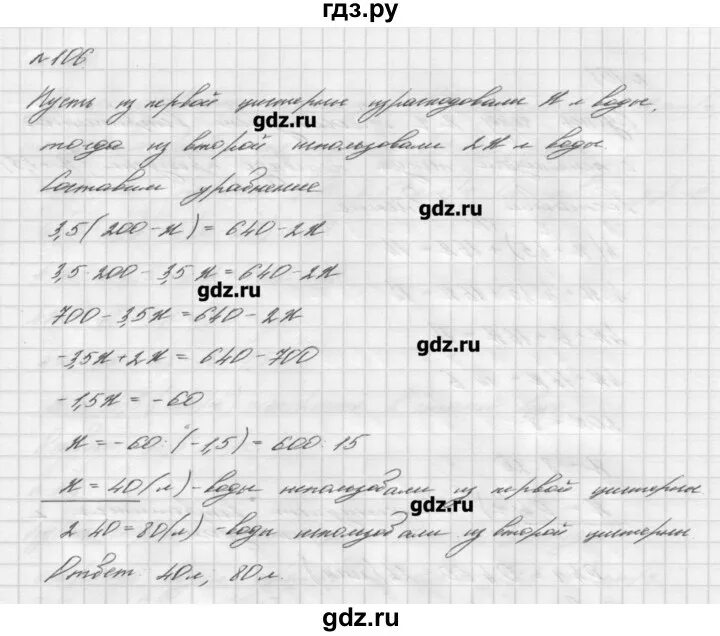 гдз.ру
№106
Пусть из первой цистерны израсходовали x л воды,
gdz.ru
тогда из второй использовали 2x л воды
Составим уравнение
gdz.ru
3,5(200-x)=640-2x
3,5·200-3,5x=640-2x
gdz.ru
700-3,5x=640-2x
gdz.ru
-3,5x+2x=640-700
-1,5x=-60
x=-60:(-1,5)=600:15
x=40(л)-воды использовали из первой цистерны
gdz.ru
2·40=80(л)-воды использовали из второй цистерны
Ответ: 40л, 80л.
gdz.ru